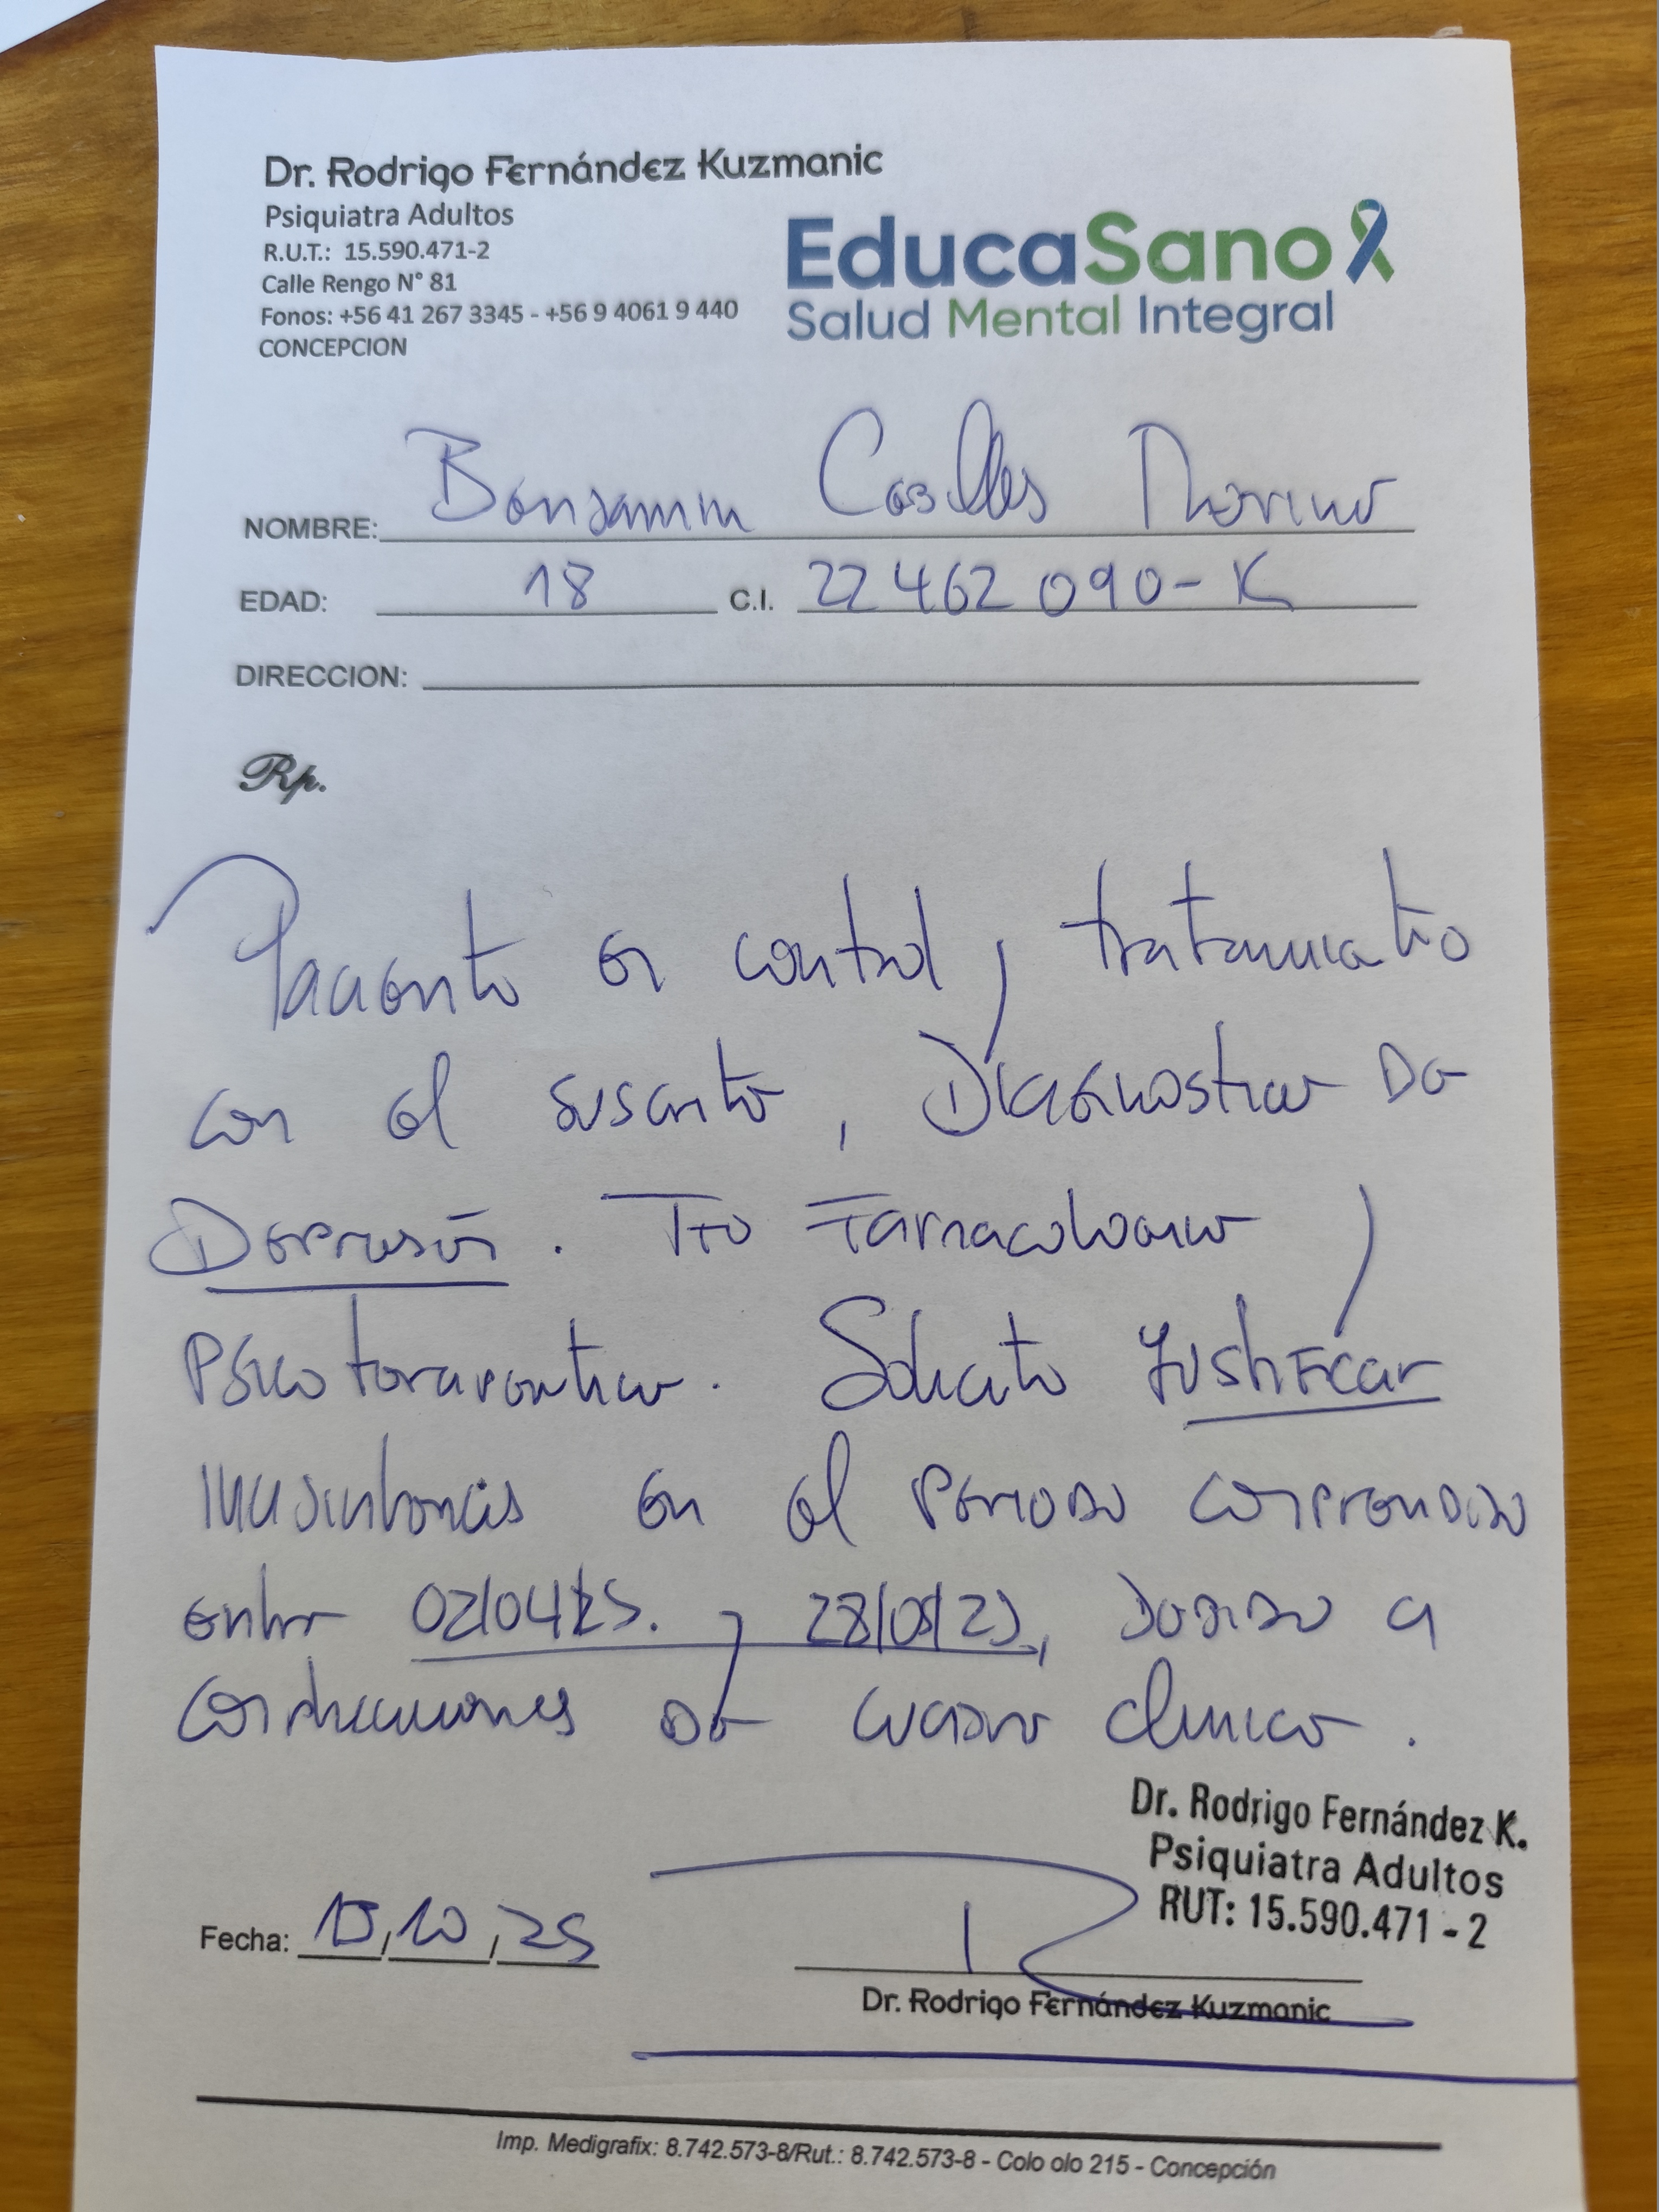 Dr. Rodrigo Fernández Kuzmanic
Psiquiatra Adultos
R.U.T.: 15.590.471-2
Calle Rengo N° 81
Fonos: +56 41 267 3345 - +56 9 4061 9 440
CONCEPCION
EducaSano
Salud Mental Integral
NOMBRE: Benjamin Casilles Moreno
EDAD: 18 C.I. 22 462 090-K
DIRECCION:
Rp.
Paciente en control y tratamiento
con el suscrito, Diagnostico De
Depresión. Tto Farmacologico y
Psicoterapeutico. Solicito Justificar
Inasistencias en el Periodo comprendido
entre 02/04/25. y 28/08/25, Debido a
complicaciones De cuadro clinico.
Dr. Rodrigo Fernández K.
Psiquiatra Adultos
RUT: 15.590.471 - 2
Fecha: 15/10/25
Dr. Rodrigo Fernández Kuzmanic
Imp. Medigrafix: 8.742.573-8/Rut.: 8.742.573-8 - Colo olo 215 - Concepción